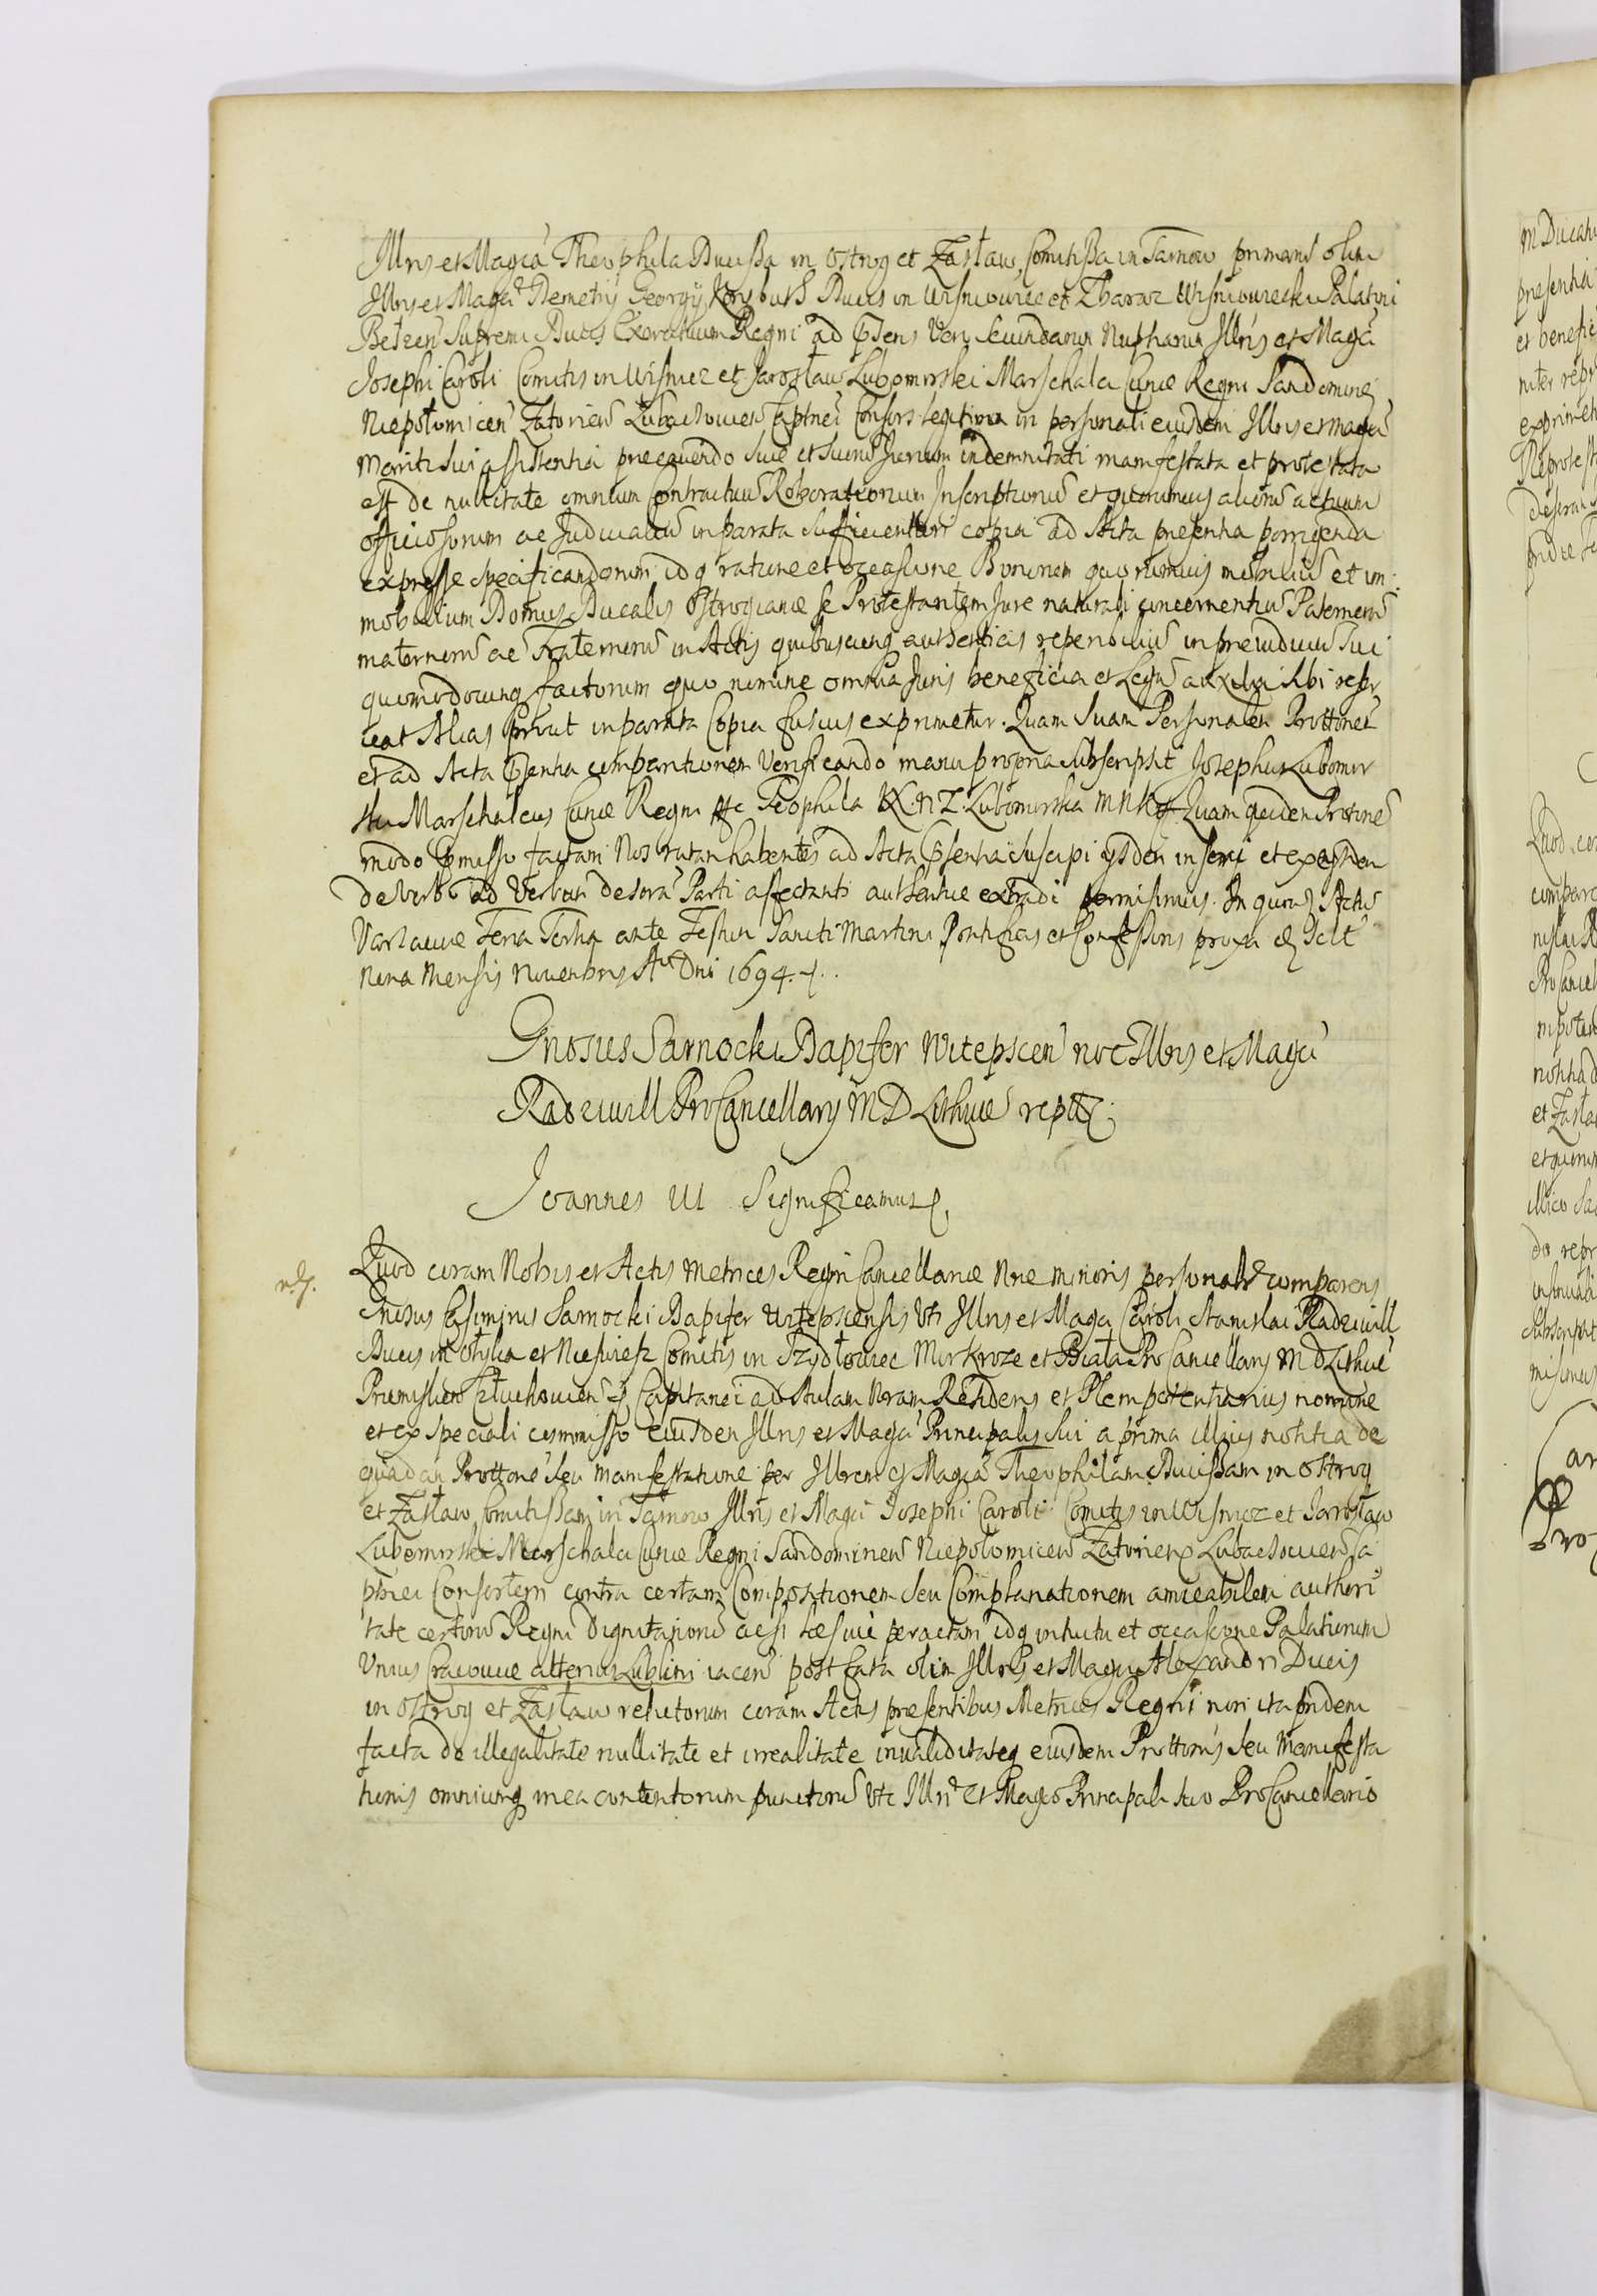 Illris et Magca Theophila Ducissa in Ostrog et Zasław, Comitissa in Tarnow primarū olim
Illris et Magci Demetrij Georgij Korybuth Ducis in Wisniowiec et Zbaraz Wisniowiecki Palatini
Bełzen Supremi Ducis Exercituum Regni ad pnsens vero secundarum Nuptiarum Illris et Magci
Josephi Caroli Comitis in Wisnicz et Jarosław Lubomirski Marschalci Curiæ Regni Sandomirien
Niepołomicen Zatorien Lubaczovien Captnei Consors legitima in personali eiusdem Illris et Magci
Mariti Sui assistentia præcavendo suæ et suorū Jurium indemnitati manifestata et protestata
est de nullitate omnium Contractuū Roborationum Inscriptionū et quorumvis aliorū actuum
officiosorum ac Judicialiū in parata sufficientiori copia ad Acta præsentia porrigenda
expresse specificandorum idq ratione et occasione Bonorum quorumvis mobiliū et im:
mobilium Domus Ducalis Ostrogianæ se Protestantem Jure naturali concernentiū Paternorū
maternorū ac Fraternorū in Actis quibuscunq authenticis reperibiliū in præiudiciū sui
quomodocunq factorum quo nomine omnia Juris beneficia et Legū auxilia sibi reser
veat Alias prout in parata Copia fusius exprimetur. Quam suam Personalem Prottonem
et ad Acta pnsentia comparitionem verificando manu propria subscripsit Josephus Lubomir
ski Marschalcus Curiæ Regni Teophila X. N Z. Lubomirska M N K Quam quidem Prottone
modo præmisso factam Nos ratam habentes ad Acta pnsentia suscipi ysdem inseri et exinde
de verbo ad verbum desorā Parti affectanti authentice extradi permisimus. In quorū Actū
Varsaviæ Feria Tertia ante Festum Sancti Martini Pontificis et Confessoris proxa Iclt
Nona Mensis Novembris Ao Dni 1694.
Gnosus Sarnocki Dapifer Witepscen noe Illris et Magci
Radziwill ProCancellarij M D Lithuæ reptt
Joannes III Significamus
Quod coram Nobis et Actis Metrices Regni Cancellariæ Nræ minoris personalr comparens
Gnosus Casimirus Sarnocki Dapifer Witepscensis Uti Illris et Magci Caroli Stanislai Radziwill
Ducis in Ołyka et Nieśwież Comitis in Szydłowiec Mir Kroze et Biała ProCancellarij M D Lithuæ
Præmyslien Człuchovien Capitanei ad Aulam Nram Residens et Plenipotentiarius nomine
et ex speciali commisso eiusdem Illris et Magci Principalis sui a prima illius notitia de
quadam Prottone seu manifestatione per Illrem et Magcā Theophilam Ducissam in Ostrog
et Zasław Comitissam in Tarnow Illris et Magci Josephi Caroli Comitis in Wisnicz et Jarosław
Lubomirski Marschalci Curiæ Regni Sandomirien Niepołomicen Zatorien Lubaczovien Ca
ptnei Consortem contra certam Compositionem seu Complanationem amicabilem authori
tate certorū Regni Dignitariorū acsi læsiue peractam idq intuitu et occasione Palatiorum
Unius Cracoviæ alterius Lublini iacen post fata olim Illris et Magci Alexandri Ducis
in Ostrog et Zasław relictorum coram Actis præsentibus Metrices Regni non ita pridem
facta de illegalitate nullitate et irrealitate invaliditateq eiusdem Prottonis seu Manifesta
tionis omniumq in ea contentorum punctorū Uti Illri et Magco Principali suo ProCancellario